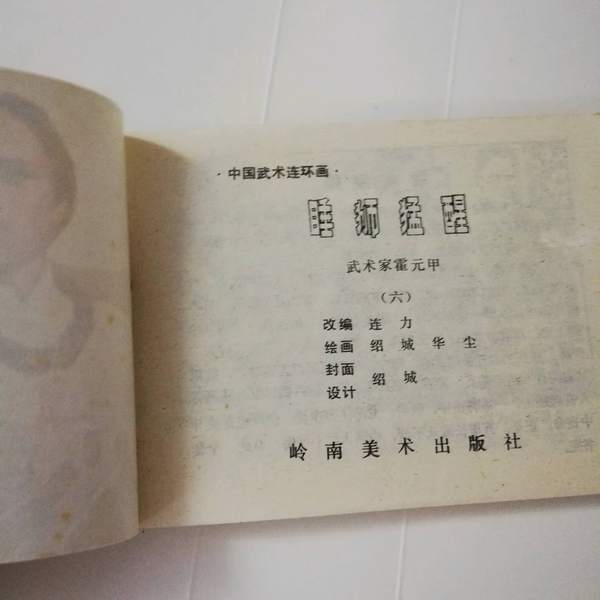 ·中国武术连环画·
睡狮猛醒
武术家霍元甲
（六）
改编 连 力
绘画 绍 城 华 尘
封面
设计 绍 城
岭南美术出版社